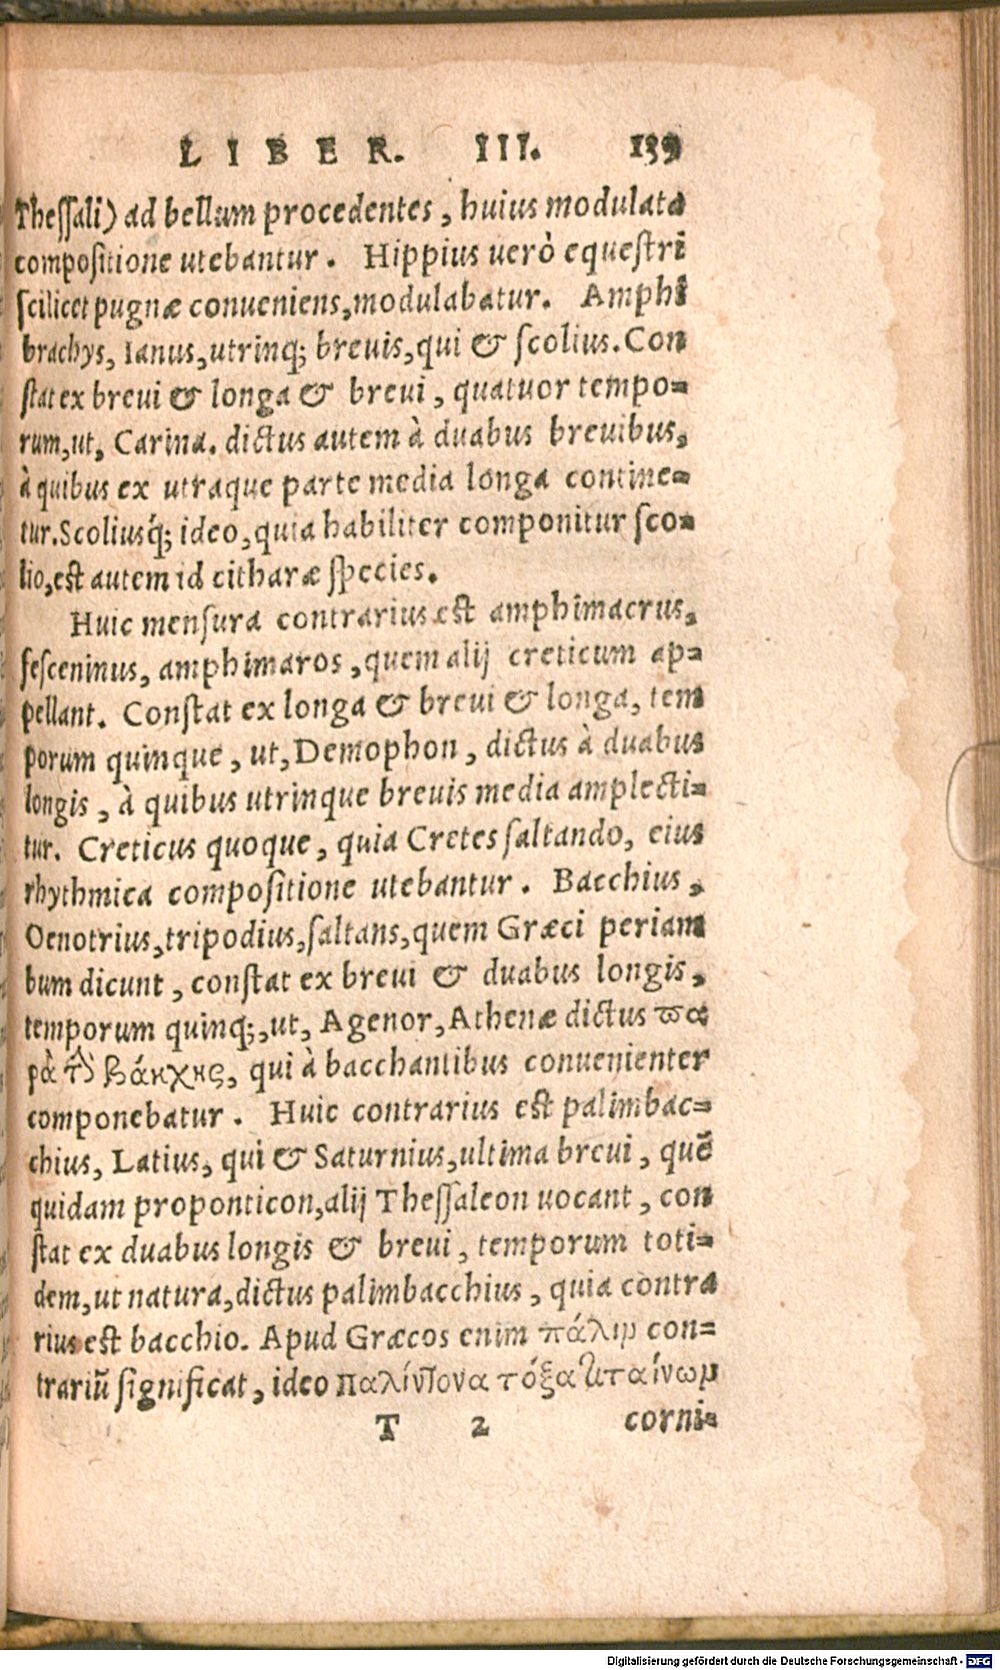 LIBER. III. 139
Thessali) ad bellum procedentes, huius modulata
compositione utebantur. Hippius uerò equestri
scilicet pugnæ conueniens, modulabatur. Amphi
brachys, Ianus, utrinq; breuis, qui & scolius. Con
stat ex breui & longa & breui, quatuor tempo-
rum, ut, Carina. dictus autem à duabus breuibus,
à quibus ex utraque parte media longa contine-
tur. Scoliusq́; ideo, quia habiliter componitur sco-
lio, est autem id citharæ species.
Huic mensura contrarius est amphimacrus,
fesceninus, amphimaros, quem alij creticum ap-
pellant. Constat ex longa & breui & longa, tem
porum quinque, ut, Demophon, dictus à duabus
longis, à quibus utrinque breuis media amplecti-
tur. Creticus quoque, quia Cretes saltando, eius
rhythmica compositione utebantur. Bacchius,
Oenotrius, tripodius, saltans, quem Græci periam
bum dicunt, constat ex breui & duabus longis,
temporum quinq;, ut, Agenor, Athenæ dictus πα
ρὰ τȣ̂ βάκχης, qui à bacchantibus conuenienter
componebatur. Huic contrarius est palimbac-
chius, Latius, qui & Saturnius, ultima breui, quē
quidam proponticon, alij Thessaleon uocant, con
stat ex duabus longis & breui, temporum toti-
dem, ut natura, dictus palimbacchius, quia contra
rius est bacchio. Apud Græcos enim πάλιν con-
trariū significat, ideo παλίντονα τόξα
T 2 corni-
Digitalisierung gefördert durch die Deutsche Forschungsgemeinschaft - DFG